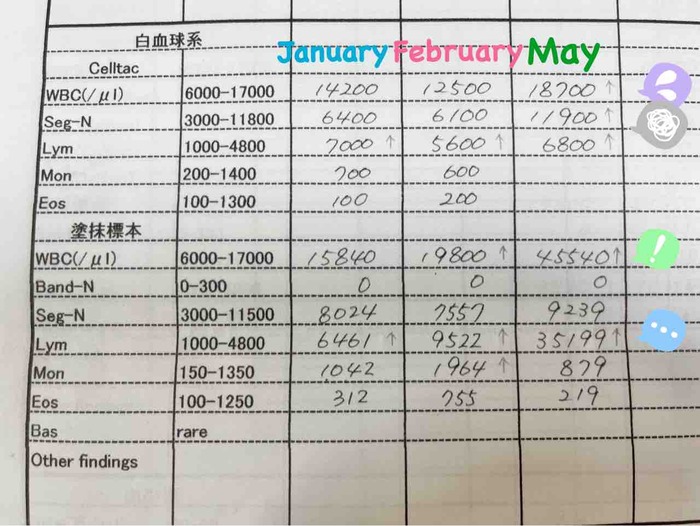 白血球系 January February May
Celltac
WBC(/μl) 6000-17000 14200 12500 18700 ↑
Seg-N 3000-11800 6400 6100 11900 ↑
Lym 1000-4800 7000 ↑ 5600 ↑ 6800 ↑
Mon 200-1400 700 600
Eos 100-1300 100 200
塗抹標本
WBC(/μl) 6000-17000 15840 19800 ↑ 45540 ↑
Band-N 0-300 0 0 0
Seg-N 3000-11500 8024 7557 9239
Lym 1000-4800 6461 ↑ 9522 ↑ 35199 ↑
Mon 150-1350 1042 1964 ↑ 879
Eos 100-1250 312 755 219
Bas rare
Other findings